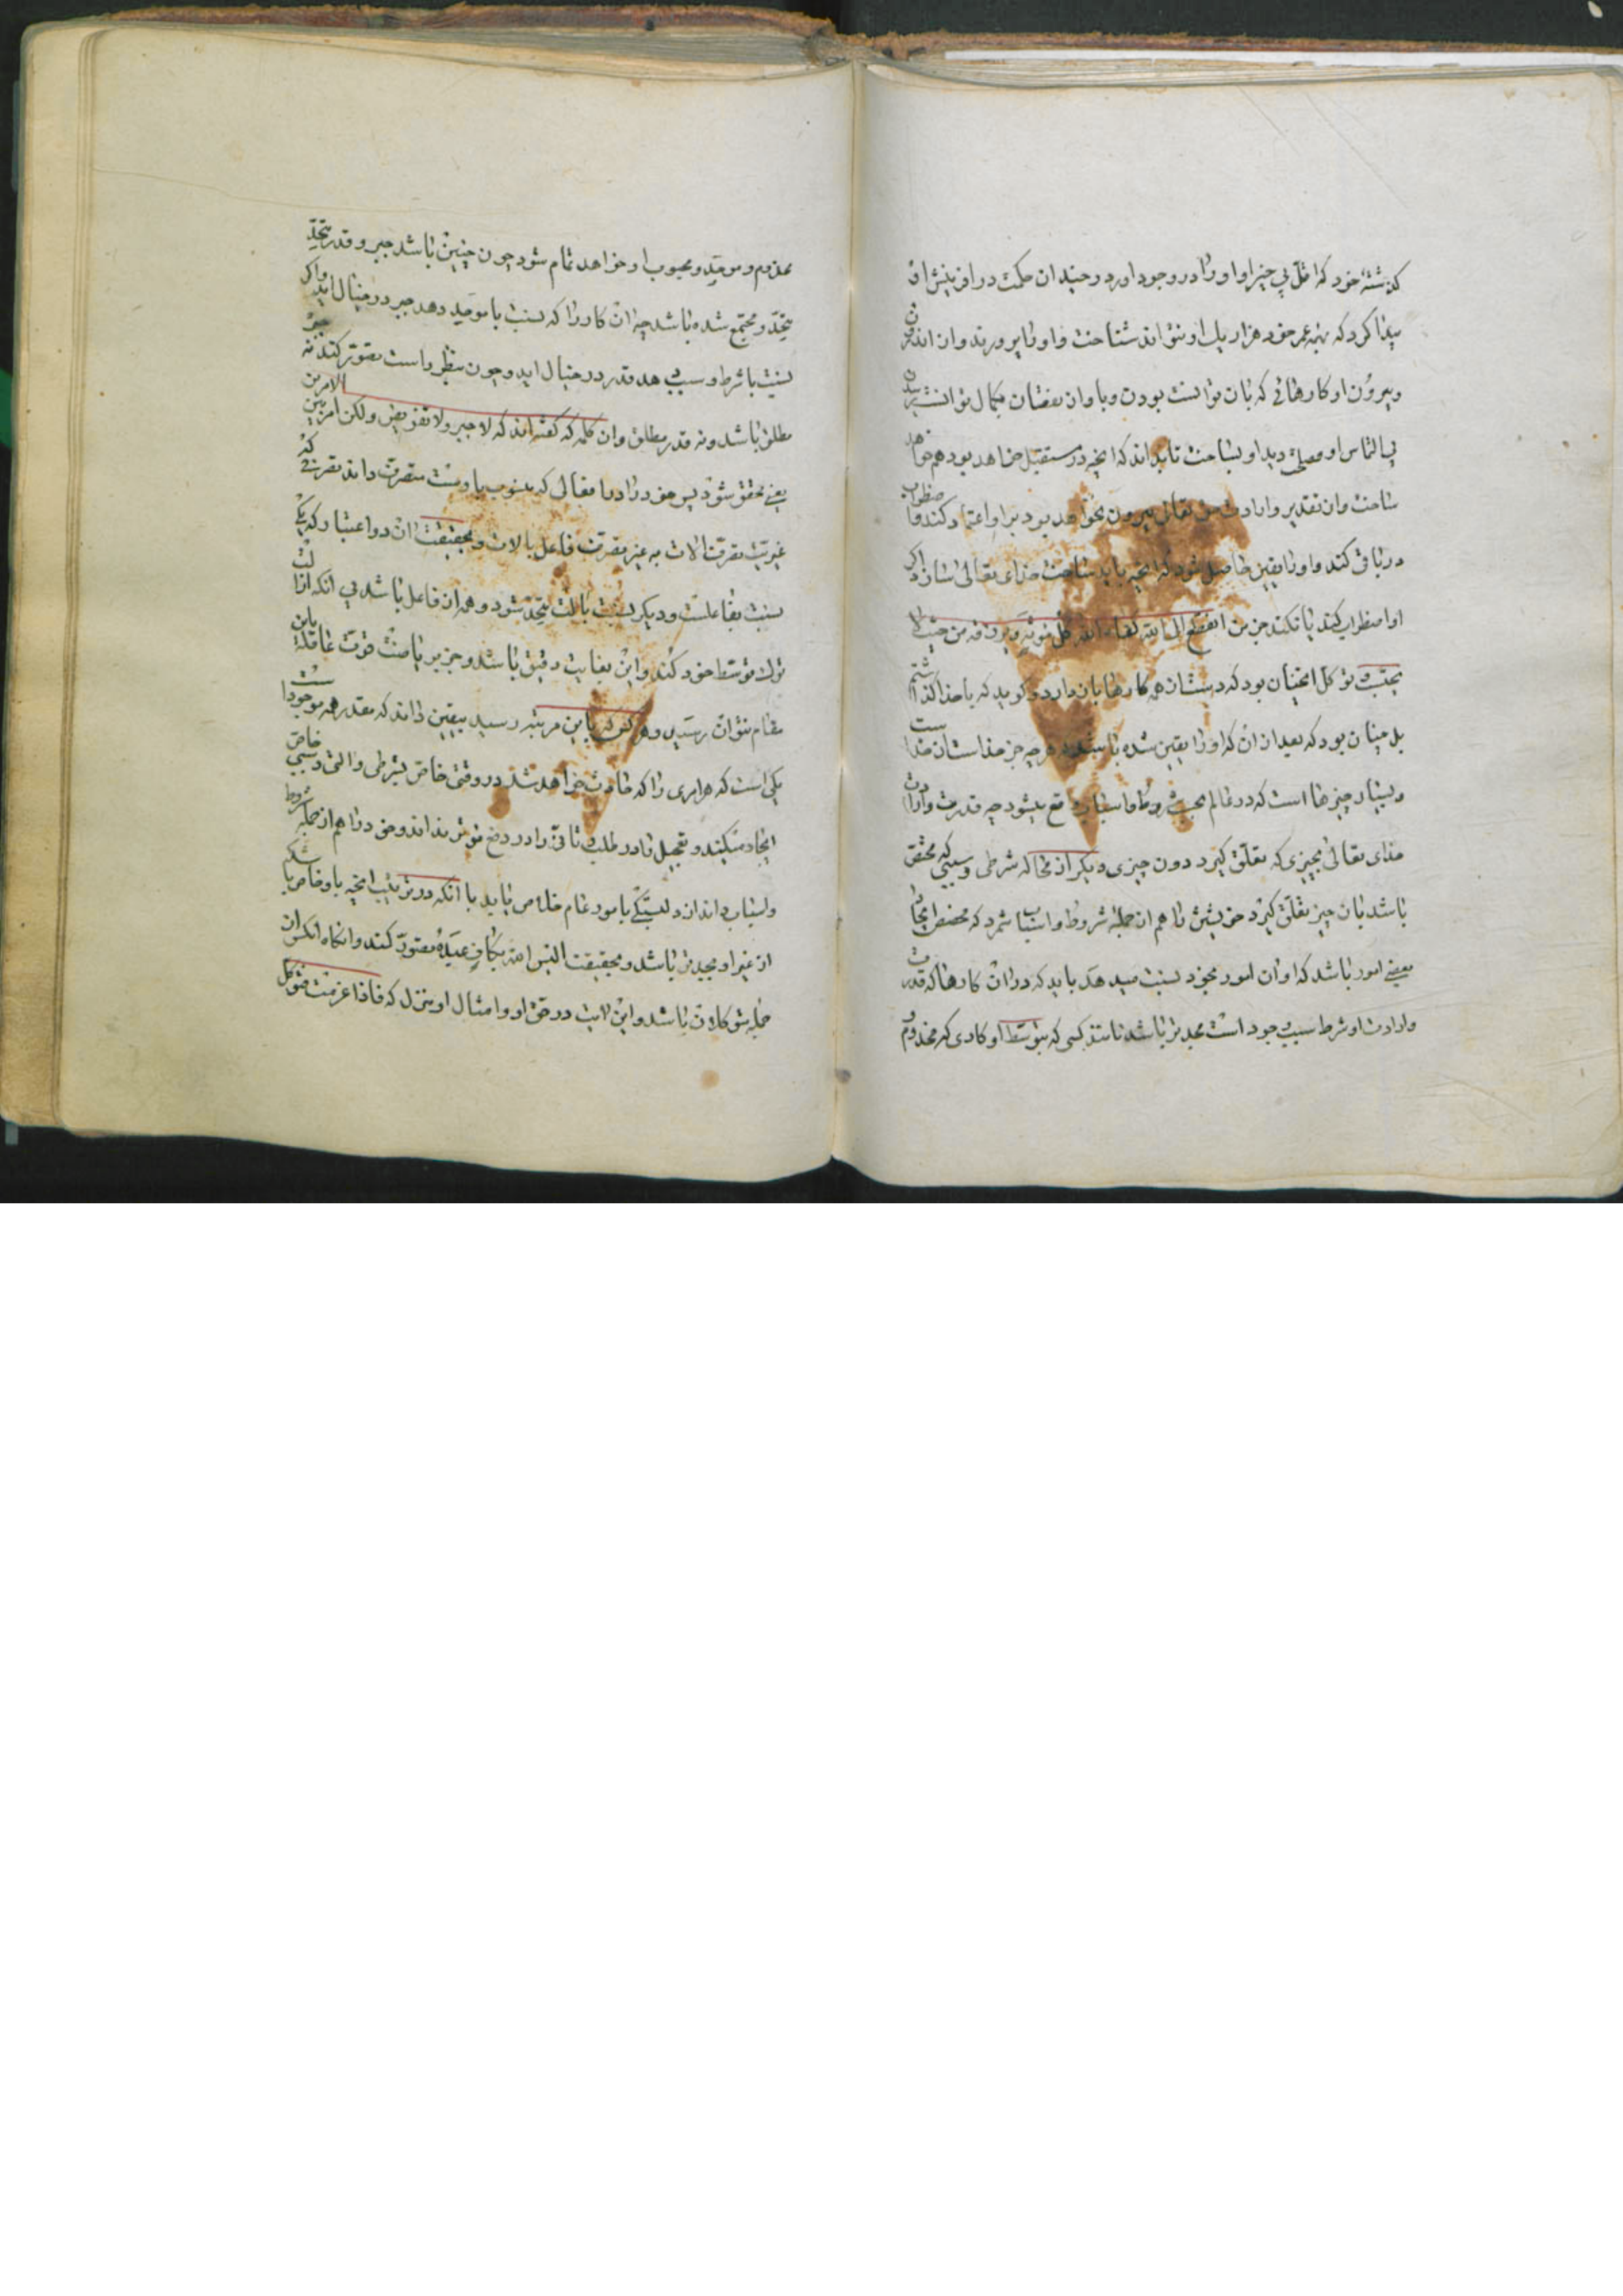 گذشته خود که اول بی چیز او او را در وجود آورد و چندان حکمت در آفرینش او
پیدا کرد که بهمه عمر خود هزار یک او نتواند شناخت و او را بپرورید و از اندرون
و بیرون او کارهائی که بان توانست بودن و با وان نقصان بکمال توانست رسیدن
بی التماس او و مصلحت دید او بساخت تا بداند که آنچه در مستقبل خواهد بود هم خواهد
ساخت و از تقدیر و ارادت حق تعالی بیرون نخواهد بود بر او اعتماد کند و اضطراب
در باقی کند و او را یقین حاصل شود که آنچه باید ساخت خدای تعالی بسازد اگر
او اضطراب کند یا نکند من انقطع الی الله کفاه الله کل مؤنة و یرزقه من حیث لا
یحتسب و توکل نه چنان بود که دست از همه کارها باز دارد و گوید که با خدا گذاشتم
بل چنان بود که بعد از آن که او را یقین شده باشد که هرچه جز خداست از خداست
و بسیار چیزها است که در عالم بحسب شروط و اسباب واقع میشود چه قدرت و ارادت
خدای تعالی بچیزی که تعلق گیرد دون چیزی دیگر از محاله شرطی و سببی که مختص
باشد بان چیز تعلق گیرد خویشتن را هم از جمله شروط و اسباب شمرد که مخصص ایجاد
بعضی امور باشد که او آن امور بخود نسبت میدهد باید که در آن کارها که قدرت
و ارادت او شرط و سبب وجود است مجدتر باشد مانند کسی که بتوسط او کاری که مخدوم و
مخدوم و موجد و محبوب او خواهد تمام شود چون چنین باشد جبر و قدر متحد
متحد و مجتمع شده باشد چه آن کار را که نسبت با موجد دهد جبر در خیال آید و اگر
نسبت با شرط و سبب دهد قدر در خیال آید و چون بنظر راست تصور کند نه جبر
مطلق باشد و نه قدر مطلق و آن کلمه که گفته اند که لا جبر و لا تفویض و لکن امر بین الامرین
یعنی محقق شود پس خود را در افعالی که منسوب باوست متصرف داند تصرفی که
غیر تصرف آلات به غیر تصرف فاعل بالات و بحقیقت آن دو اعتبار که یکی
نسبت بفاعلست و دیگر نسبت بآلت متحد شود و همه از فاعل باشد بی آنکه آلت
ترک توسط خود کند و این بغایت دقیق باشد و جز بریاضت قوت عاقله باین
مقام نتوان رسید و هر کس که باین مرتبه رسید بیقین داند که مقدر همه موجودات
یکی است که هر امری را که حادث خواهد شد در وقتی خاص بشرطی و آلتی و سببی خاص
ایجاد میکند و تعجیل را در طلب و تأنی را در دفع مؤثر نداند و خود را هم از جمله شروط
و اسباب داند از دلبستگی بامور عالم خلاص یابد با آنکه در ترتیب آنچه باو خاص باشد
از غیر او مجدتر باشد و بحقیقت الیس الله بکاف عبده تصور کند و آنگاه آن کس از
جمله متوکلان باشد و این آیت در حق او و امثال او منزل که فاذا عزمت فتوکل